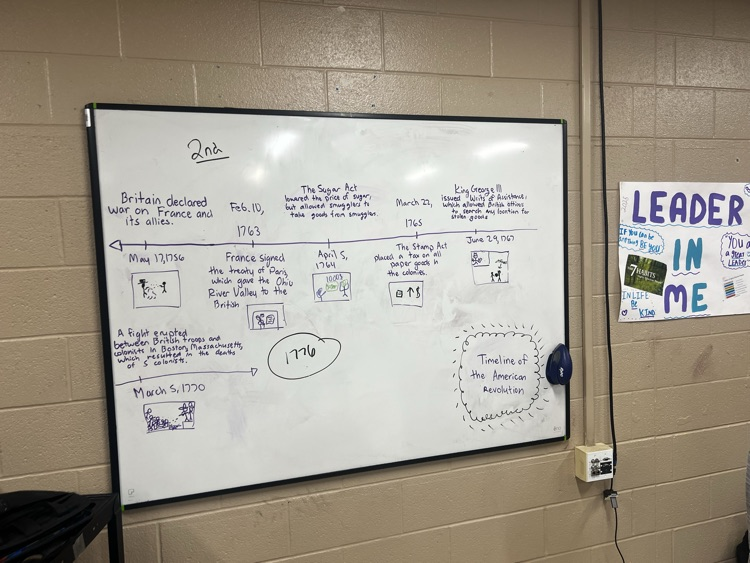 2nd
Britain declared
war on France and
its allies.
May 17, 1756
Feb. 10,
1763
France signed
the treaty of Paris
which gave the Ohio
River Valley to the
British
The Sugar Act
lowered the price of sugar,
but allowed smugglers to
take goods from smugglers.
April 5,
1764
March 22,
1765
The Stamp Act
placed a tax on all
paper goods in
the colonies.
King George III
issued Writs of Assistance,
which allowed British officers
to search any location for
stolen goods
June 29, 1767
A fight erupted
between British troops and
colonists in Boston, Massachusetts,
which resulted in the deaths
of 5 colonists.
March 5, 1770
1776
Timeline of
the American
Revolution
LEADER
IN
ME
If You can be
anything BE YOU
7 HABITS
IN LIFE
BE
KIND
You a
a great
LEADER